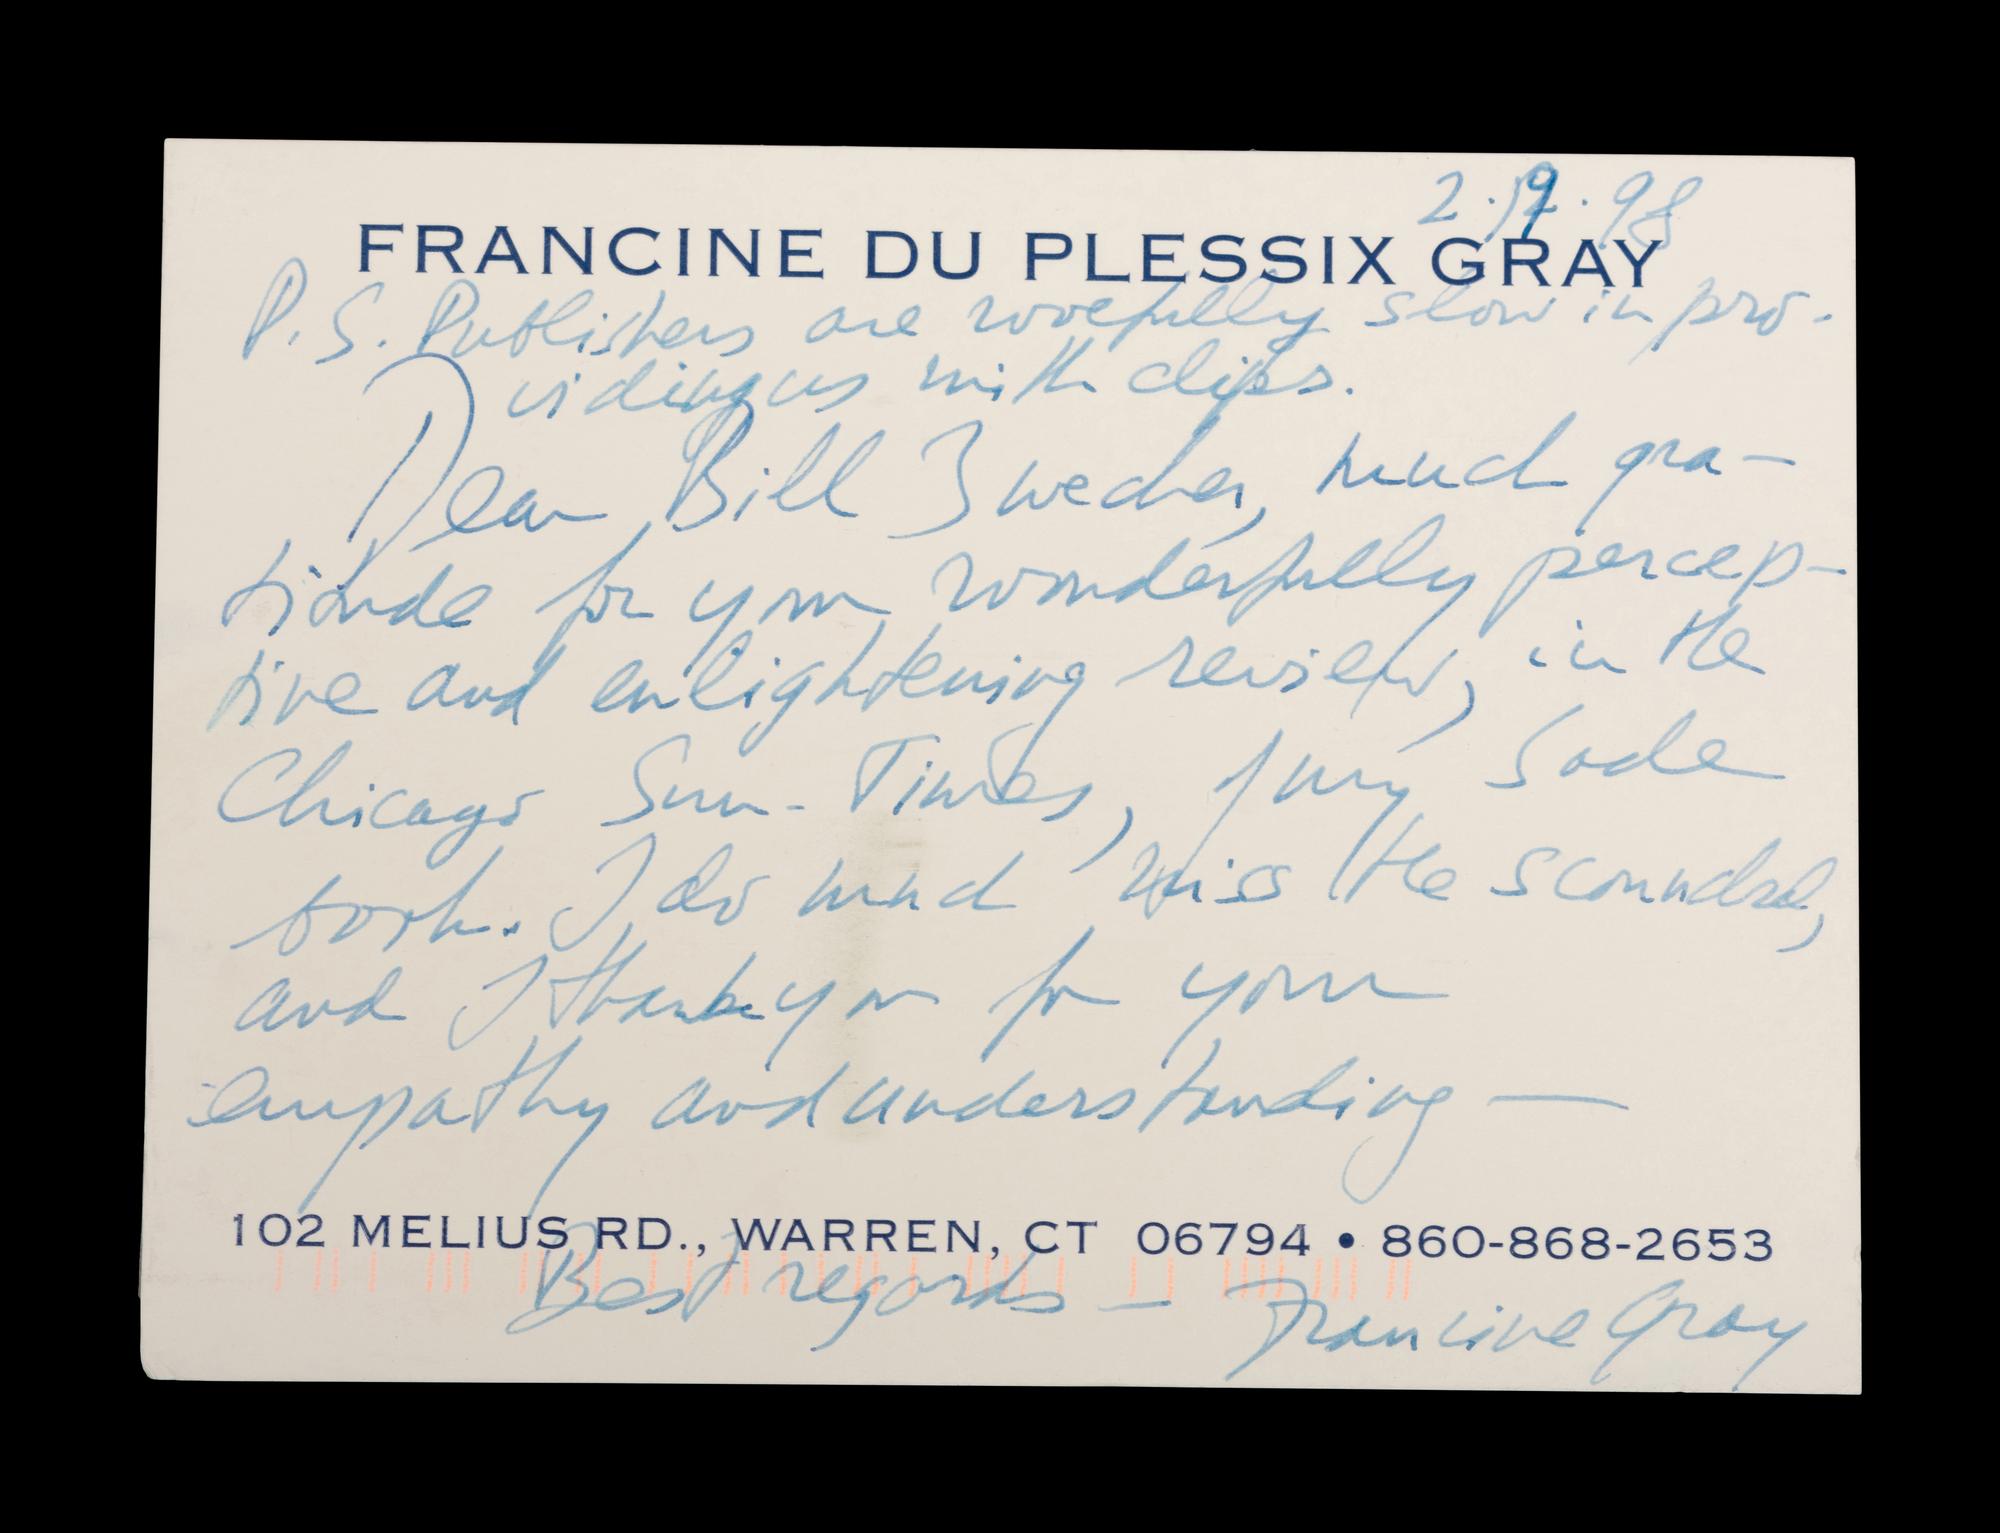 2. 9. 98
FRANCINE DU PLESSIX GRAY
P.S. Publishers are woefully slow in pro-
viding us with clips.
Dear Bill Zwecker, much gra-
titude for your wonderfully percep-
tive and enlightening review, in the
Chicago Sun-Times, of my Sade
book. I do much miss the scoundrel,
and I thank you for your
empathy and understanding —
102 MELIUS RD., WARREN, CT 06794 • 860-868-2653
Best regards — Francine Gray